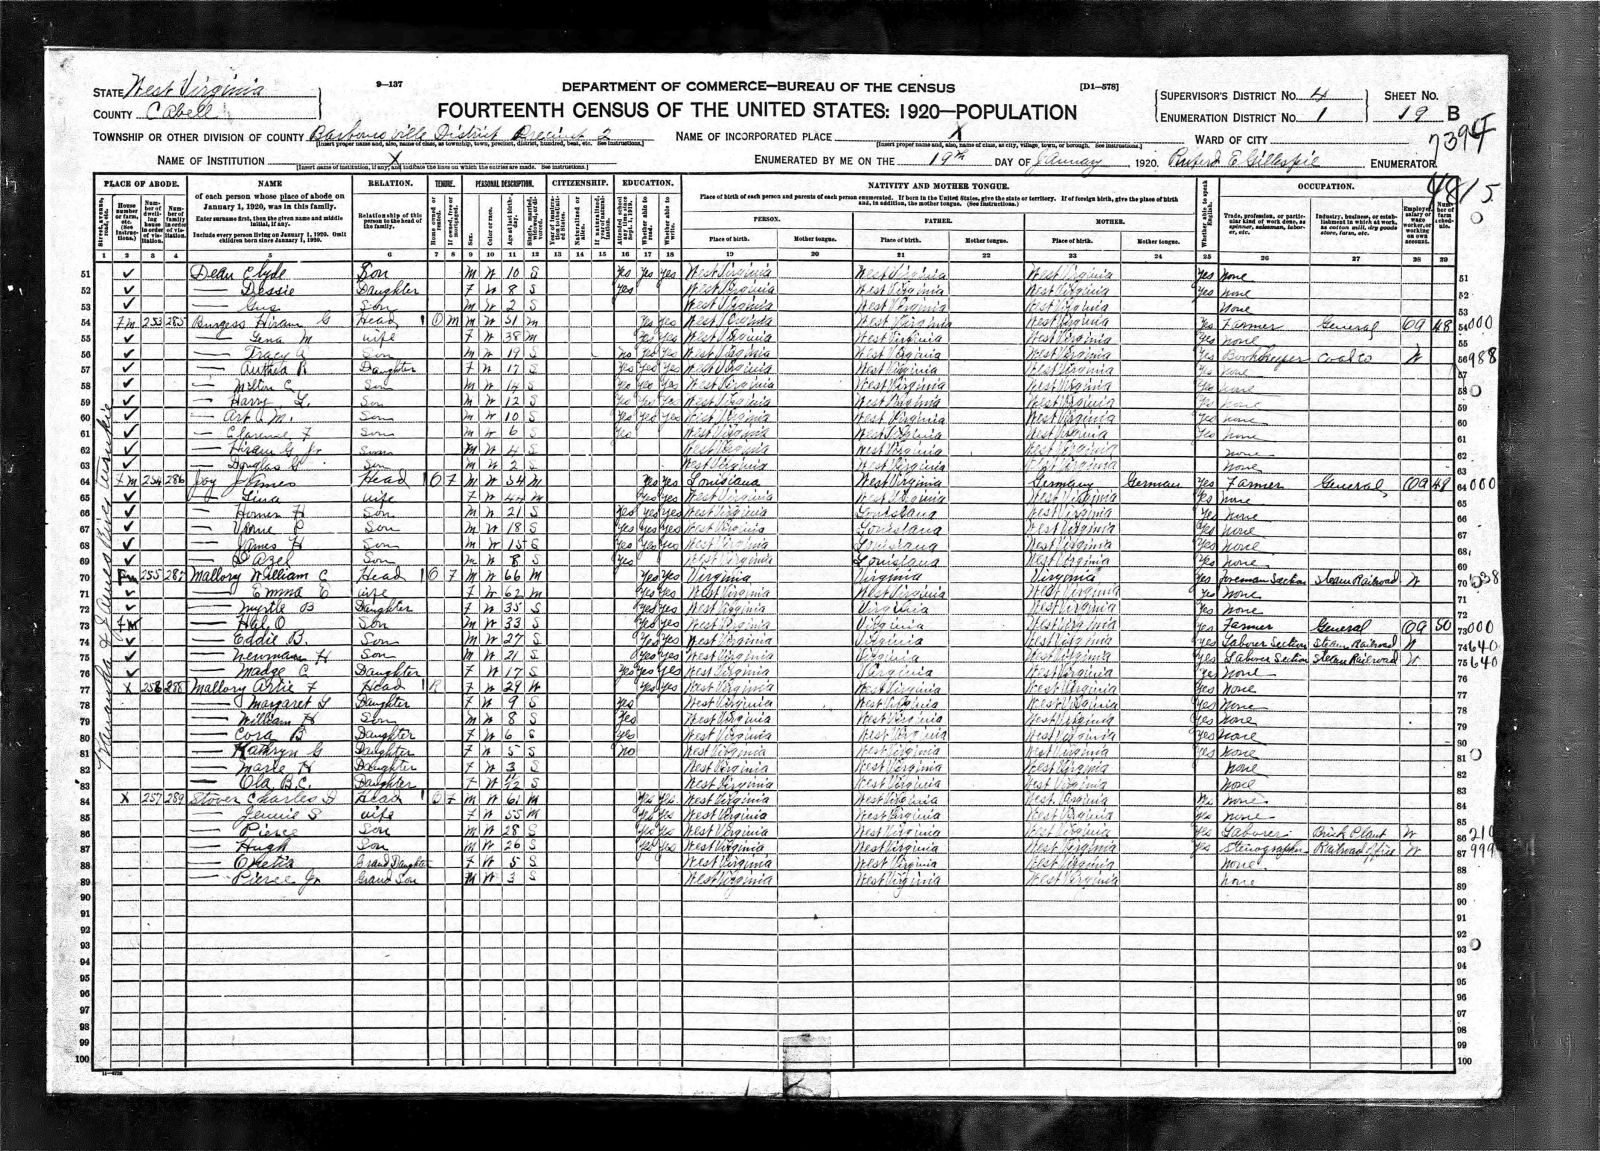 9-137
DEPARTMENT OF COMMERCE—BUREAU OF THE CENSUS
[D1-578]
STATE West Virginia
COUNTY Cabell
FOURTEENTH CENSUS OF THE UNITED STATES: 1920—POPULATION
SUPERVISOR'S DISTRICT No. 4 SHEET No.
ENUMERATION DISTRICT No. 1 19 B
TOWNSHIP OR OTHER DIVISION OF COUNTY Barboursville District Precinct 2 NAME OF INCORPORATED PLACE X WARD OF CITY
NAME OF INSTITUTION X ENUMERATED BY ME ON THE 19th DAY OF January, 1920. Gillespie ENUMERATOR
PLACE OF ABODE. NAME RELATION. TENURE. PERSONAL DESCRIPTION. CITIZENSHIP. EDUCATION. NATIVITY AND MOTHER TONGUE. OCCUPATION.
of each person whose place of abode on January 1, 1920, was in this family.
Enter surname first, then the given name and middle initial, if any.
Include every person living on January 1, 1920. Omit children born since January 1, 1920.
Relationship of this person to the head of the family.
Place of birth of each person and parents of each person enumerated. If born in the United States, give the state or territory. If of foreign birth, give the place of birth and, in addition, the mother tongue. (See instructions.)
PERSON. FATHER. MOTHER.
Place of birth. Mother tongue. Place of birth. Mother tongue. Place of birth. Mother tongue.
1 2 3 4 5 6 7 8 9 10 11 12 13 14 15 16 17 18 19 20 21 22 23 24 25 26 27 28 29
51 Dean Clyde Son M W 10 S Yes Yes Yes West Virginia West Virginia West Virginia Yes None 51
52 — Dessie Daughter F W 8 S Yes West Virginia West Virginia West Virginia Yes None 52
53 — Gus Son M W 2 S West Virginia West Virginia West Virginia None 53
54 Fm 253 285 Burgess Hiram G Head 1 O M M W 51 M Yes Yes West Virginia West Virginia West Virginia Yes Farmer General OA 48 54
55 — Lena M wife F W 38 M Yes Yes West Virginia West Virginia West Virginia Yes None 55
56 — Tracy A Son M W 19 S No Yes Yes West Virginia West Virginia West Virginia Yes Bookkeeper Coal Co W 56 988
57 — Daughter F W 17 S Yes Yes Yes West Virginia West Virginia West Virginia Yes None 57
58 — Milton C Son M W 14 S Yes Yes Yes West Virginia West Virginia West Virginia Yes None 58
59 — Harry L. Son M W 12 S Yes Yes Yes West Virginia West Virginia West Virginia Yes None 59
60 — Art M. Son M W 10 S Yes Yes Yes West Virginia West Virginia West Virginia Yes None 60
61 — Clarence F Son M W 6 S Yes West Virginia West Virginia West Virginia Yes None 61
62 — Hiram G Jr Son M W 4 S West Virginia West Virginia West Virginia None 62
63 — Douglas Son M W 2 S West Virginia West Virginia West Virginia None 63
64 Fm 254 286 Joy James Head 1 O F M W 54 M Yes Yes Louisiana West Virginia Germany German Yes Farmer General OA 49 64
65 — Lina wife F W 44 M Yes Yes West Virginia West Virginia West Virginia Yes None 65
66 — Homer H Son M W 21 S Yes Yes Yes West Virginia Louisiana West Virginia Yes None 66
67 — Son M W 18 S Yes Yes Yes West Virginia Louisiana West Virginia Yes None 67
68 — James H Son M W 15 S Yes Yes Yes West Virginia Louisiana West Virginia Yes None 68
69 — Son M W 8 S Yes West Virginia Louisiana West Virginia Yes None 69
70 Fm 255 287 Mallory William C Head 1 O F M W 66 M Yes Yes Virginia Virginia Virginia Yes Foreman Section Steam Railroad W 70
71 — Emma E wife F W 62 M Yes Yes West Virginia West Virginia West Virginia Yes None 71
72 — Myrtle B Daughter F W 35 S Yes Yes West Virginia Virginia West Virginia Yes None 72
73 Fm — Hal O Son M W 33 S Yes Yes West Virginia Virginia West Virginia Yes Farmer General OA 50 73 000
74 — Eddie B. Son M W 27 S Yes Yes West Virginia Virginia West Virginia Yes Laborer Section Steam Railroad W 74 640
75 — Newman H Son M W 21 S Yes Yes West Virginia Virginia West Virginia Yes Laborer Section Steam Railroad W 75 640
76 — Madge C Daughter F W 17 S Yes Yes Yes West Virginia Virginia West Virginia Yes None 76
77 X 256 288 Mallory Artie F Head 1 R F W 29 W Yes Yes West Virginia West Virginia West Virginia Yes None 77
78 — Margaret G Daughter F W 9 S Yes West Virginia West Virginia West Virginia Yes None 78
79 — William H Son M W 8 S Yes West Virginia West Virginia West Virginia Yes None 79
80 — Cora B Daughter F W 6 S Yes West Virginia West Virginia West Virginia Yes None 80
81 — Kathryn G Daughter F W 5 S No West Virginia West Virginia West Virginia Yes None 81
82 — Marie H Daughter F W 3 S West Virginia West Virginia West Virginia None 82
83 — Ola B.C. Daughter F W 11/12 S West Virginia West Virginia West Virginia None 83
84 X 257 289 Stover Charles D Head 1 O F M W 61 M Yes Yes West Virginia West Virginia West Virginia Yes None 84
85 — Jennie S wife F W 55 M Yes Yes West Virginia West Virginia West Virginia Yes None 85
86 — Pierce Son M W 28 S Yes Yes West Virginia West Virginia West Virginia Yes Laborer Brick Plant W 86
87 — Hugh Son M W 26 S Yes Yes West Virginia West Virginia West Virginia Yes Stenographer Railroad Office W 87 999
88 — Grand Daughter F W 5 S West Virginia West Virginia West Virginia None 88
89 — Pierce Jr Grand Son M W 3 S West Virginia West Virginia West Virginia None 89
90 90
91 91
92 92
93 93
94 94
95 95
96 96
97 97
98 98
99 99
100 100